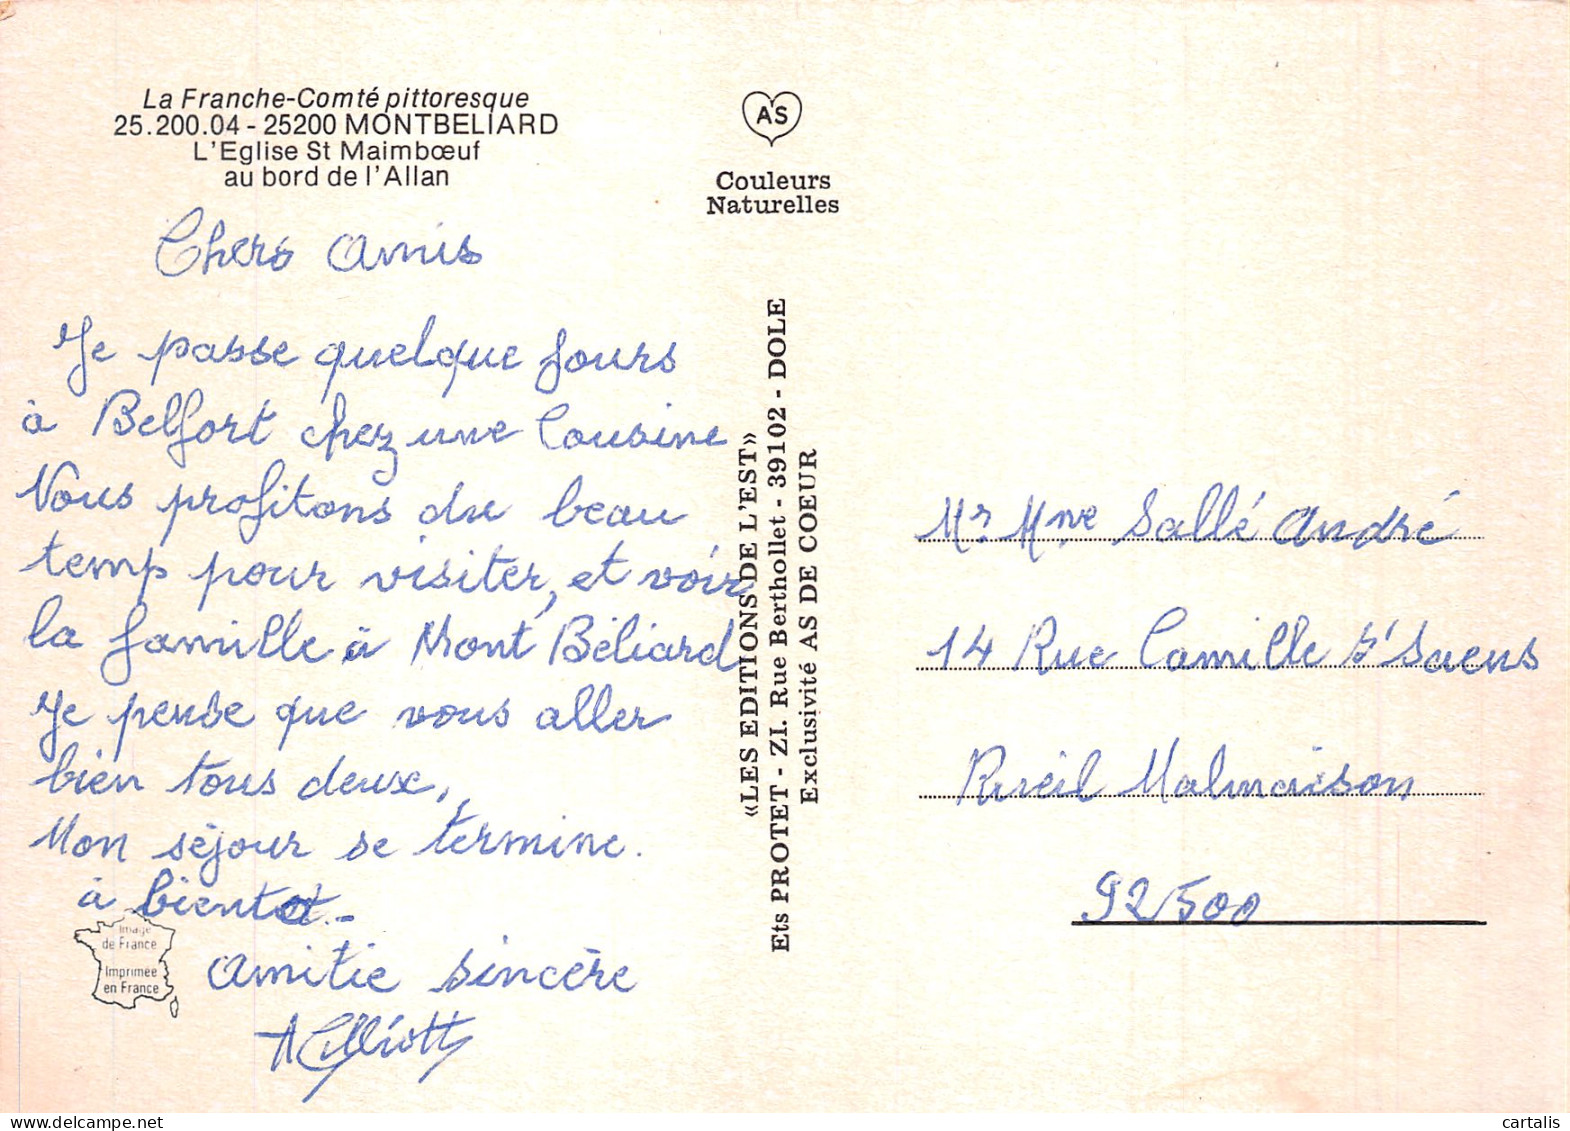 La Franche-Comté pittoresque
25.200.04 - 25200 MONTBELIARD
L'Eglise St Maimbœuf
au bord de l'Allan
Chers Amis
Je passe quelque jours
à Belfort chez une Cousine
Nous profitons du beau
temp pour visiter, et voir
la famille à Mont Béliard
Je pense que vous aller
bien tous deux,
Mon séjour se termine.
à bientot.-
Amitie sincère
AS
Couleurs
Naturelles
«LES EDITIONS DE L'EST»
Ets PROTET - ZI. Rue Berthollet - 39102 - DOLE
Exclusivité AS DE COEUR
Mr Mme Sallé André
14 Rue Camille St Saens
Rueil Malmaison
92500
Image
de France
Imprimée
en France
cartalis